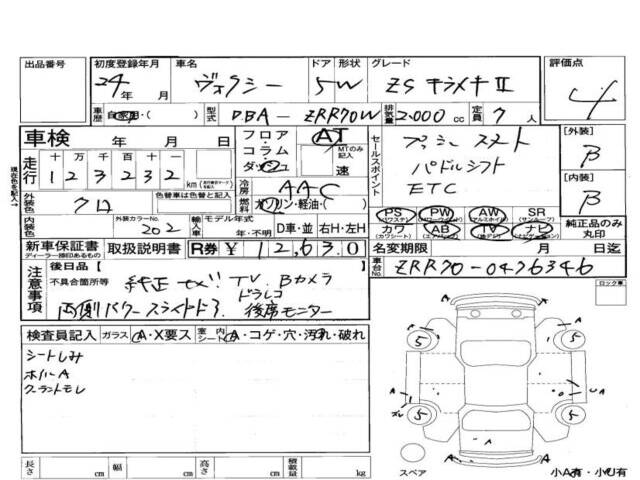 出品番号 初度登録年月 車名 ドア 形状 グレード 評価点
24年 月 ヴォクシー 5W ZS キラメキⅡ 4
車歴 自家用・( ) 型式 DBA-ZRR70W 排気量 2,000cc 定員 7人
車検 年 月 日 フロア・コラム・ダッシュ AT MTのみ記入 速 セールスポイント プッシュスタート [外装] B
走行 十万千百十一 123232 km パドルシフト
冷房 AAC ETC [内装] B
外装色 クロ 色替車は色替と記入 燃料 ガソリン・軽油・( ) PS PW AW SR
内装色 外装カラーNo. 202 輸入車 モデル年式 年・不明 D車・並 右H・左H カワ AB TV ナビ 純正品のみ丸印
新車保証書 取扱説明書 R券 ¥12,630 名変期限 月 日迄
ディーラー捺印あるもの
車台No. ZRR70-0476346
注意事項 後日品[ ]
不具合箇所等 純正ナビ.TV.Bカメラ
ドラレコ
両側パワースライドドア 後席モニター
ロック車
検査員記入 ガラス A・X要ス 室内シート A・コゲ・穴・汚れ・破れ
シートしみ
クーラントモレ
5 5
A A
5 5
スペア
小A有・小U有
長さ cm 幅 cm 高さ cm 積載量 kg
現在色を記入→